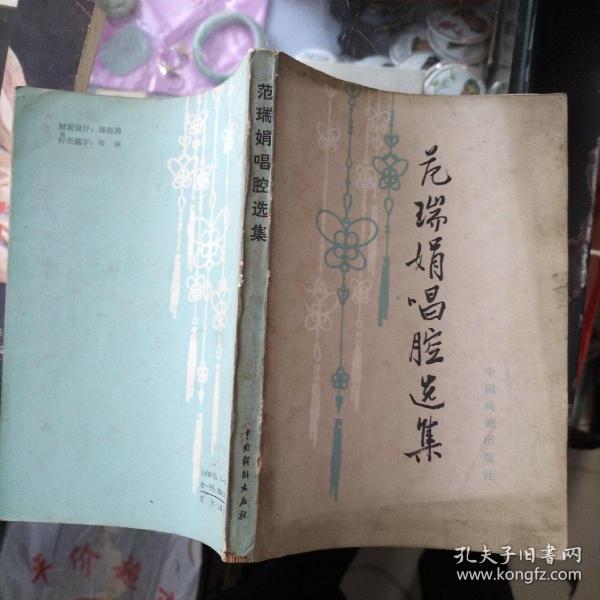 范瑞娟唱腔选集
中国戏剧出版社
范瑞娟唱腔选集
中国戏剧出版社
封面设计：
封面题字：张
平价超市
孔夫子旧书网
www.kongfz.com